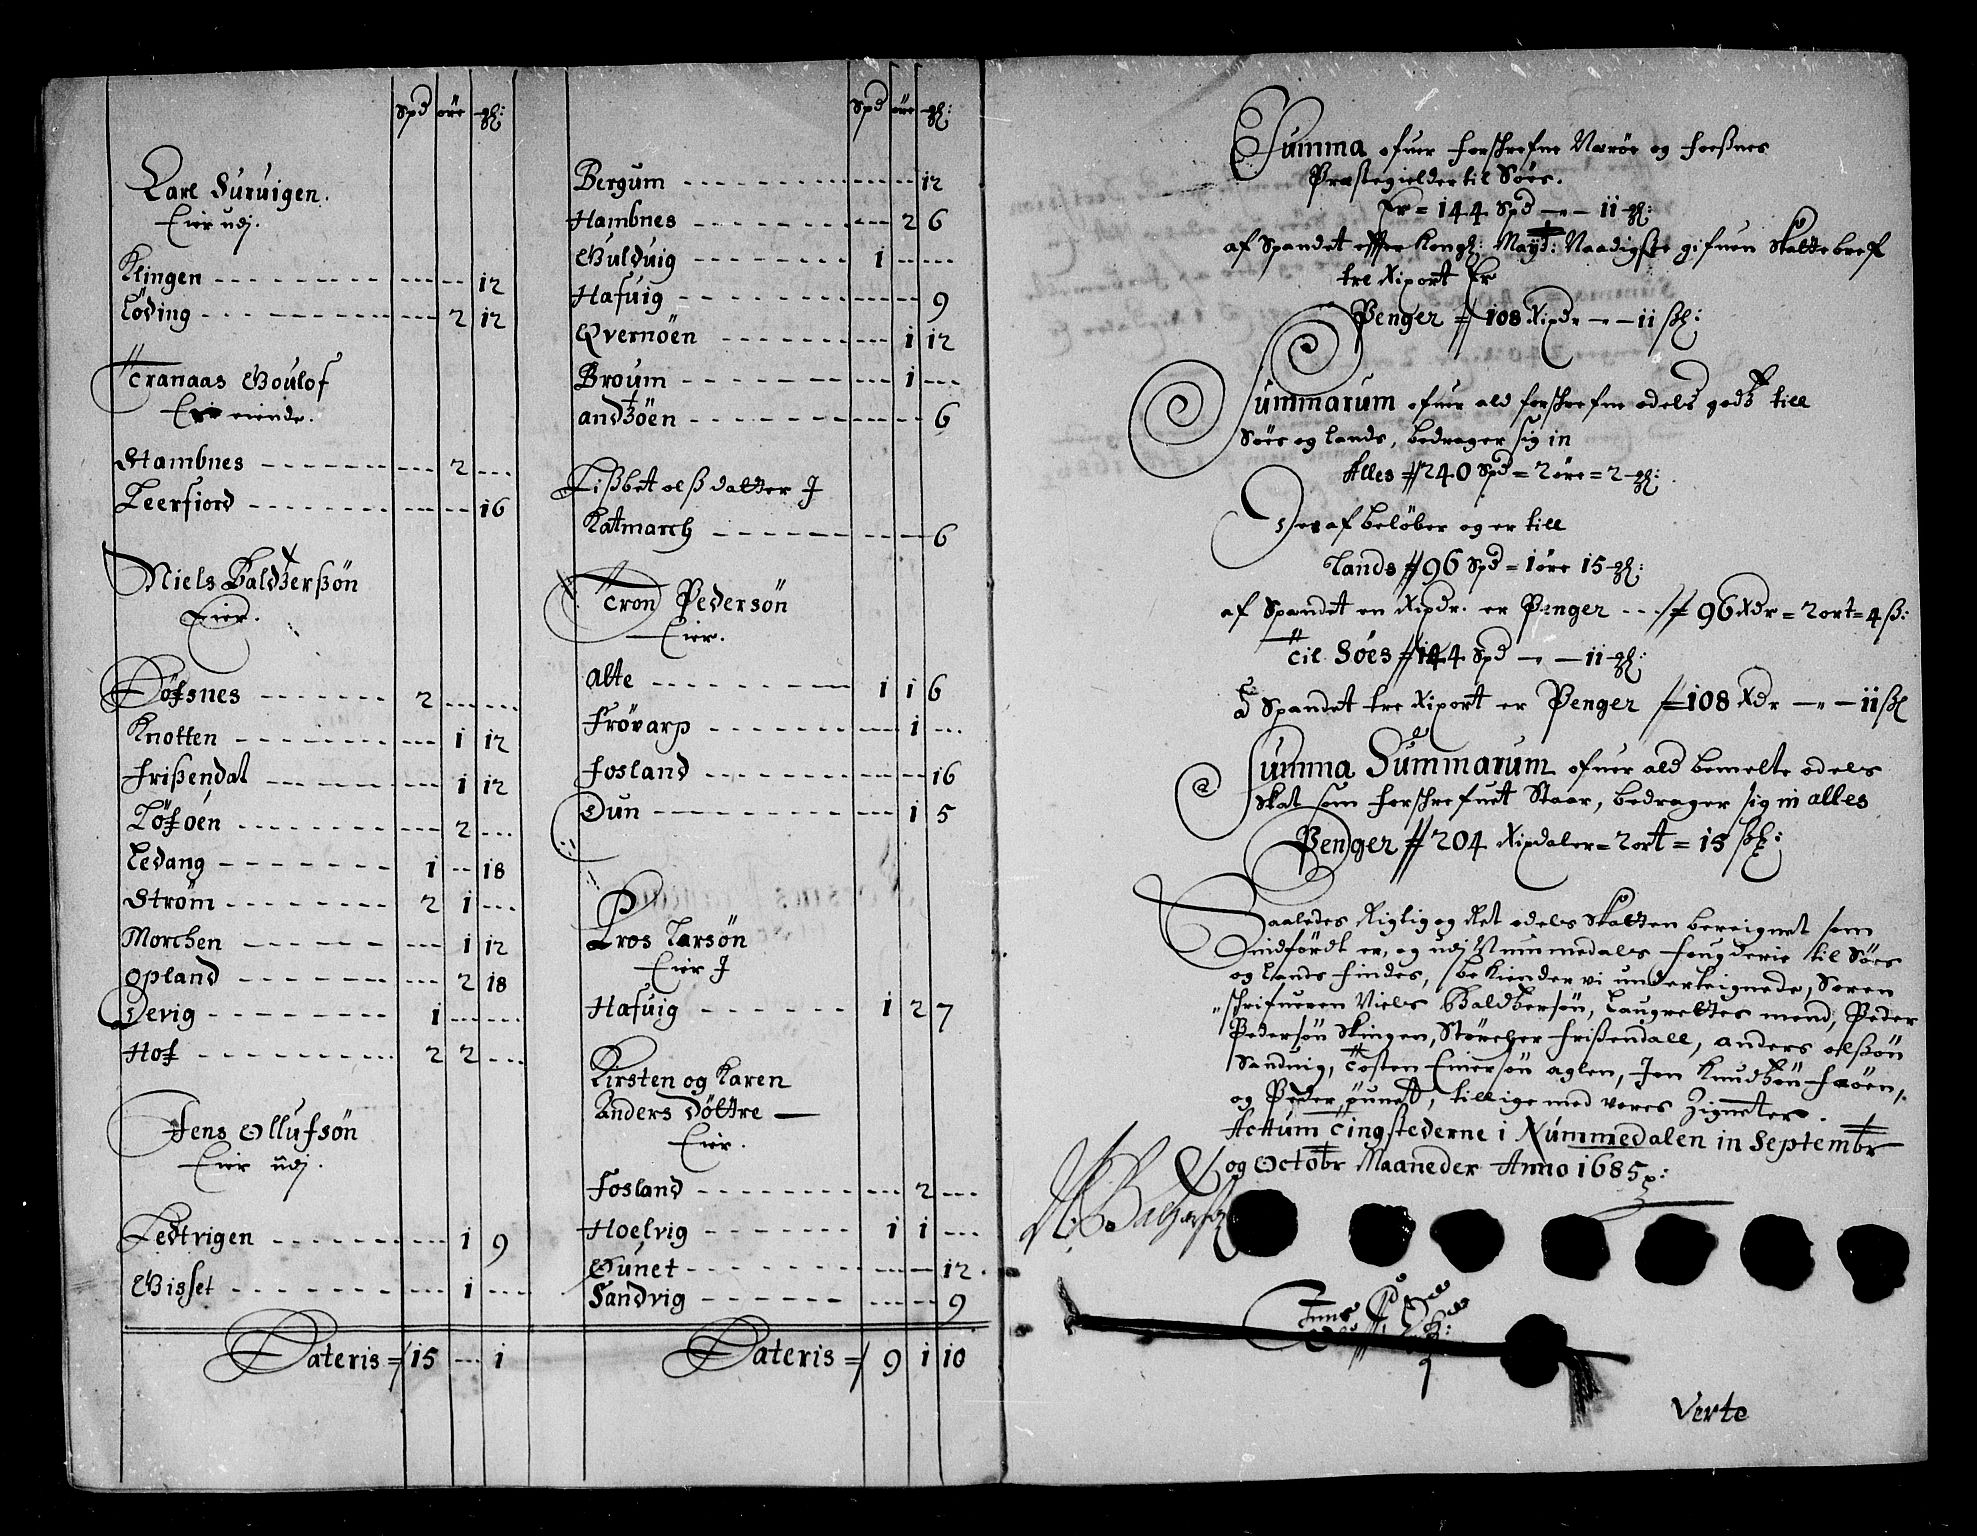 Spd øre gl:
Carl Suruigen.
Eier udj.
Klingen - - - 12
Löding - - - 2 12
Tranaas Goulof
Er eiende.
Stambnes - - - 2 - - -
Leerfiord - - - 16
Niels Baldzerßön
Eier.
Döfsnes - - - 2 - - -
Knotten - - - 1 12
Frißendal - - - 1 12
Löföen - - - 2 - - -
Ledang - - - 1 - - 18
Ström - - - 2 1 - - -
Morchen - - - 1 12
Opland - - - 2 18
Devig - - - 1 - - -
Hof - - - 2 2 - - -
Jens Ollufsön
Eier udj.
Ledtrigen - - - 1 9
Gisset - - - 1 - - -
Lateris = 15 - - - 1
Spd øre gl:
Bergum - - - 12
Hambnes - - - 2 6
Gulduig - - - 1 - - -
Hafuig - - - 9
Qvernöen - - - 1 12
Broum - - - 1 - - -
andzöen - - - 6
Lißbet olß datter J
Katmarch - - - 6
Tron Pedersön
Eier.
Alte - - - 1 1 6
Frövarp - - - 1 - - -
Fosland - - - 16
Dun - - - 1 5
Cros Larsön
Eier J
Hafuig - - - 1 2 7
Kirsten og Karen
Anders Döttre —
Eier.
Fosland - - - 2 - - -
Hoelvig - - - 1 1 - - -
Gunet - - - 12.
Sandvig - - - 9
Lateris = 9 1 10
Summa ofuer forschrefne Nærøe og Foeßnes
Præstegielder til Søes.
Er = 144 Spd — " — 11 gl:
af Spandet effter Kongl: Mayt: Naadigste gifuen Skattebref
tre Rixort Er
Penger # 108 Rixdr — " — 11 ßl:
Summarum ofuer ald forschrefne odels godtz till
Søes og lands, bedrager sig in
Alles # 240 Spd = 2 øre = 2 gl:
Der af beløber og er till
Lands # 96 Spd = 1 øre 15 gl:
af Spandet en Rixdr. er Penger - - - # 96 Rdr = 2 ort = 4 ß:
Til Søes # 144 Spd — " — 11 gl:
á Spandet tre Rixort er Penger # 108 Rdr — " — 11 ßl
Summa Summarum ofuer ald bemelte odels
Skat som forschrefuet Staar, bedrager sig in alles
Penger # 204 Rixdaler = 2 ort = 15 ßl:
Saaledes Rigtig og Ret odels Skatten beregnet som
indførdt er, og udj Nummedals fougderie til Søes
og lands findes, be Kiender vi underteignede, Soren
schrifueren Niels Baldtzersön, Laugrettes mend, Peder
Pedersön Klingen, Størcher Frißendall, anders olßön
Sandvig, Tosten Einersön aglen, Jon Knudtzön Faöen,
og Peder punet, tillige med vores Zigneter.
Actum Tingstederne i Nummedalen in Septembr
og Octobr Maaneder Anno 1685 p:
N. Baltzersön
Verte